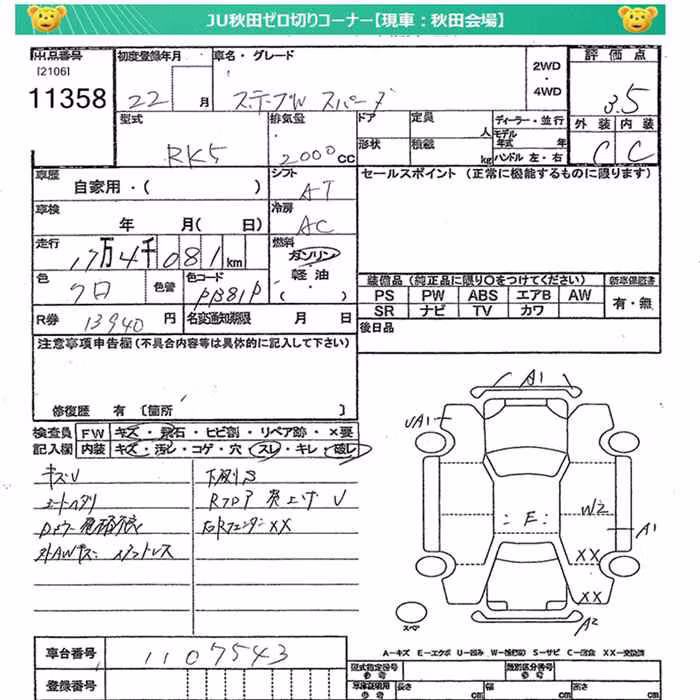 JU秋田ゼロ切りコーナー【現車：秋田会場】
出品番号
[2106]
11358
初度登録年月
22 月
車名・グレード
ステップW スパーダ
2WD
・
4WD
評価点
3.5
外装 内装
C C
型式
RK5
排気量
2000 CC
ドア
形状
定員
人
積載
kg
ディーラー・並行
モデル
年式 年
ハンドル 左・右
車歴
自家用・( )
シフト
AT
セールスポイント (正常に機能するものに限ります)
車検
年 月( 日)
冷房
AC
走行
17万4千081km
燃料
ガソリン
・
軽油
( )
色
クロ
色替
色コード
装備品 (純正品に限り○をつけてください)
新車保証書
PS PW ABS エアB AW
SR ナビ TV カワ
有・無
R券 13940 円
名変通知期限 月 日
後日品
注意事項申告欄 (不具合内容等は具体的に記入して下さい)
修復歴 有 [箇所 ]
検査員
記入欄
FW キズ・飛石・ヒビ割・リペア跡・×要
内装 キズ・汚し・コゲ・穴・スレ・キレ・破レ
キズU
シートヘタリ
下廻りS
Rフロア 突上ゲ U
右RフェンダーXX
A1
UA1
E
W2
A1
XX
XX
A2
スペア
A－キズ E－エクボ U－凹み S－サビ C－腐食 XX－交換済
車台番号
1107543
登録番号
型式指定番号
参考
類別区分番号
参考
車庫証明用
参考
長さ
cm
幅
cm
高さ
cm